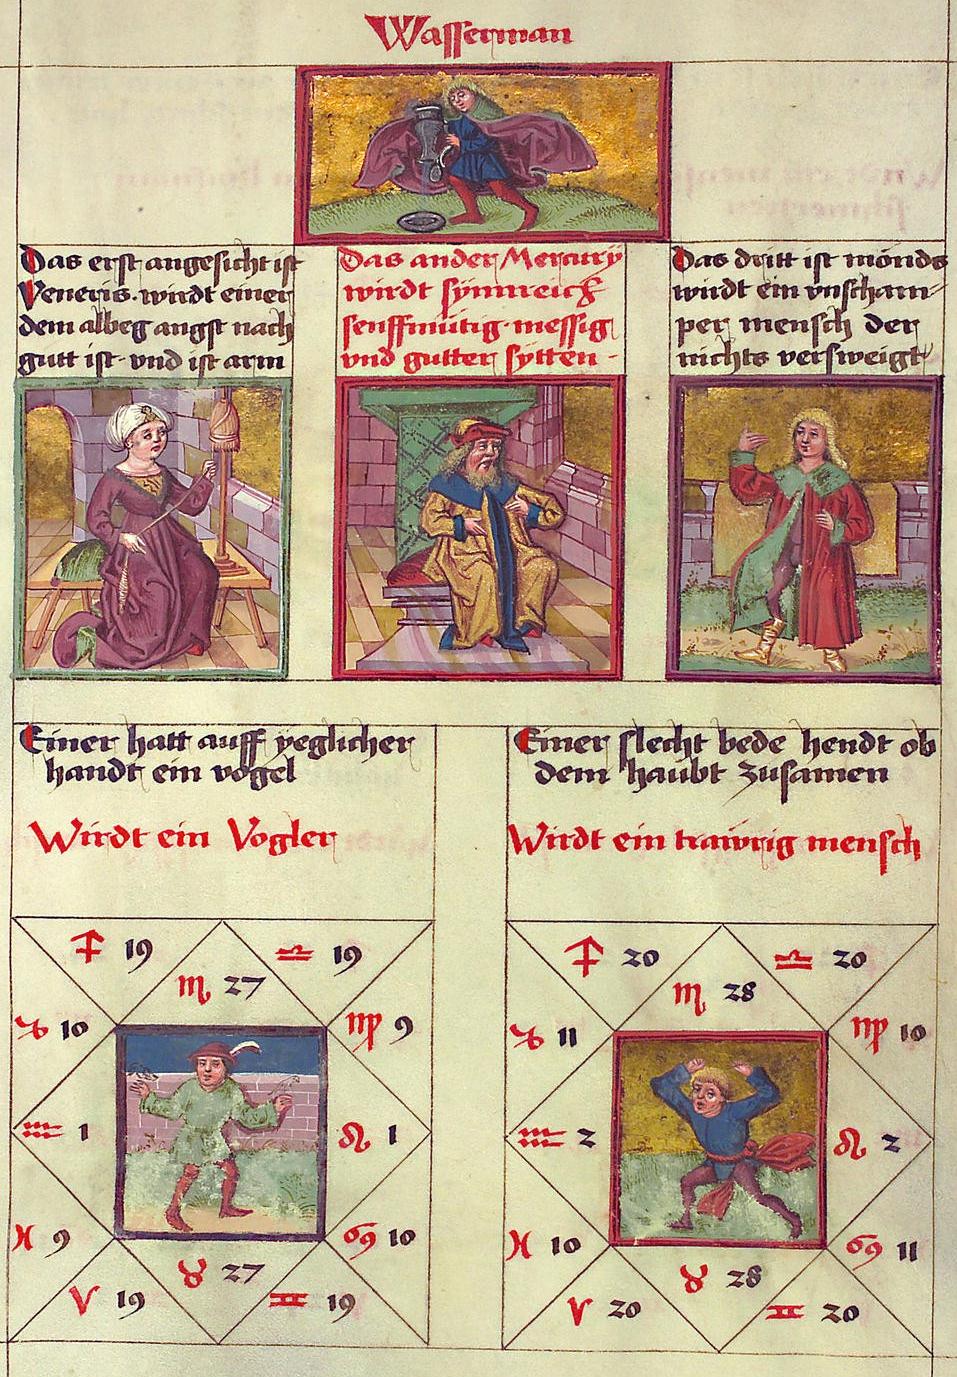 Wasserman
Das erst angesicht ist
Veneris. wirdt einer
dem albeg angst nach
gutt ist. vnd ist arm
Das ander Mercurÿ
wirdt sÿnnreich
senffmütig. messig
vnd gutter sÿtten.
Das dritt ist mönds
wirdt ein vnscham-
per mensch der
nichts versweigt
Einer hatt auff ÿeglicher
handt ein vogel
Wirdt ein Vogler
♐ 19
♎ 19
♏ 27
♑ 10
♍ 9
♒ 1
♌ 1
♓ 9
♋ 10
♉ 27
♈ 19
♊ 19
Einer slecht bede hendt ob
dem haubt zusamen
Wirdt ein trawrig mensch
♐ 20
♎ 20
♏ 28
♑ 11
♍ 10
♒ 2
♌ 2
♓ 10
♋ 11
♉ 28
♈ 20
♊ 20